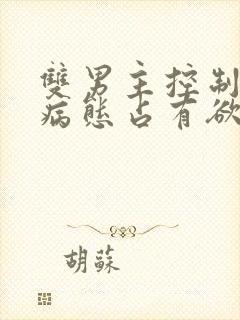 雙男主控制
病態占有欲
胡蘇